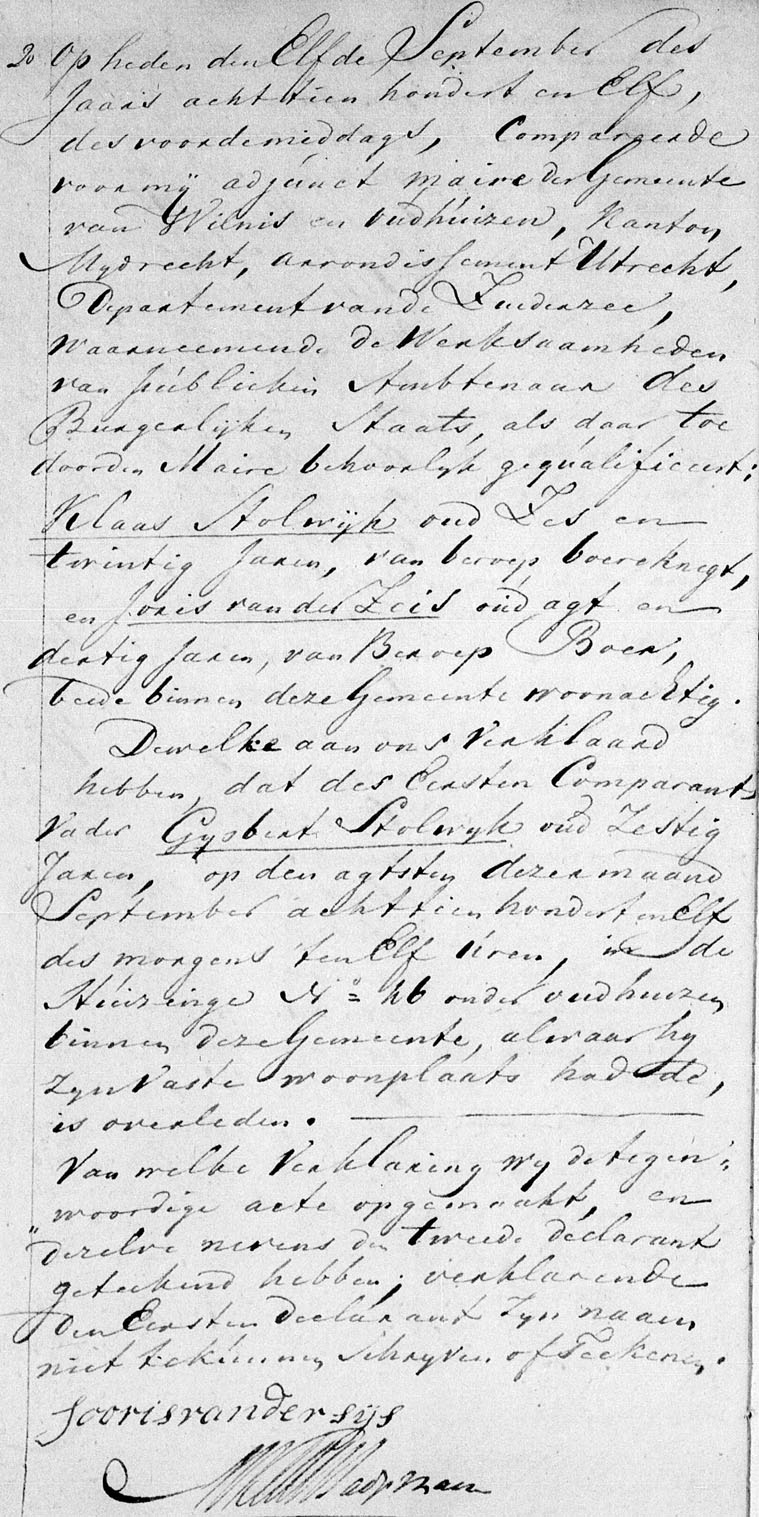 20 Op heden den Elfde September des
Jaars acht tien hondert en Elf,
des voordemiddags, Compareerde
voor mij adjunct maire der Gemeente
van Wilnis en oudhuizen, Kanton
Mydrecht, arrondissement Utrecht,
Departement van de Zuiderzee,
waarneemende de Werksaamheden
van publieken Ambtenaar des
Burgerlijken Staats, als daar toe
door den Maire behoorlyk gequalificeert;
Klaas Stolwijk oud Zes en
twintig Jaren, van beroep boereknegt,
en Joris van der Zeis oud agt en
dertig Jaren, van Beroep Boer,
beede binnen deze Gemeente woonachtig.
Dewelke aan ons Verklaard
hebben, dat des Eersten Comparants
Vader Gysbert Stolwyk oud Zestig
Jaren, op den agtsten dezer maand
September acht tien hondert en Elf
des morgens ten Elf uren, in de
Huizinge No= 46 onder oudhuizen
binnen deze Gemeente, alwaar hy
zyn Vaste woonplaats hadde,
is overleden.
Van welke Verklaring wy de tegen„
„woordige acte opgemaakt, en
dezelve nevens den tweede declarant
geteekend hebben; verklarende
den Eersten declarant zyn naam
niet te kunnen Schryven of Teekenen.
Joorisvandersijs